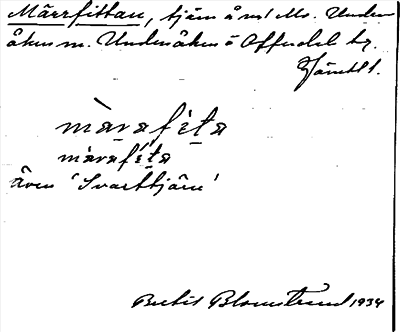 Märrfittan, tjärn å n:r 1 Ms. Under-
åker m. Undersåkers o Offerdals tg.
Jämtl l.
màrafìta
màrafíta
även 'Svarttjärn'
Bertil Blomstrand 1934